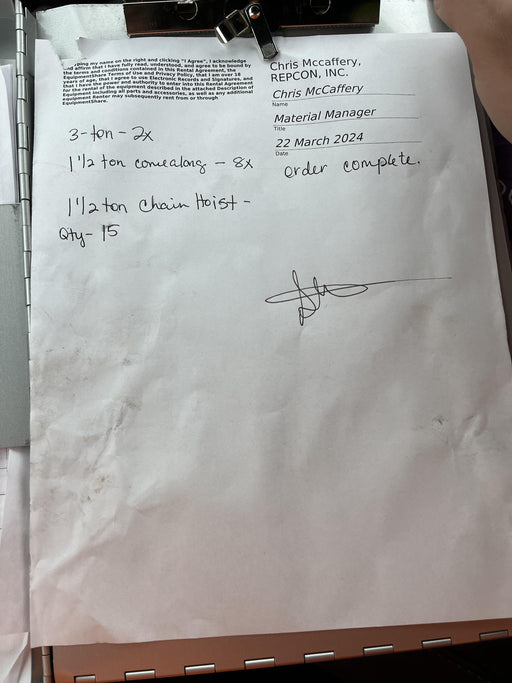 ping my name on the right and clicking "I Agree", I acknowledge
and affirm that I have fully read, understood, and agree to be bound by
the terms and conditions contained in this Rental Agreement, the
EquipmentShare Terms of Use and Privacy Policy, that I am over 18
years of age, that I agree to use Electronic Records and Signatures, and
that I have the power and authority to enter into this Rental Agreement
for the rental of the equipment described in the attached Description of
Equipment including all parts and accessories, as well as any additional
Equipment Renter may subsequently rent from or through
EquipmentShare.
Chris Mccaffery,
REPCON, INC.
Chris McCaffery
Name
Material Manager
Title
22 March 2024
Date
order complete.
3-ton - 2x
1 1/2 ton comealong - 8x
1 1/2 ton Chain Hoist -
Qty- 15